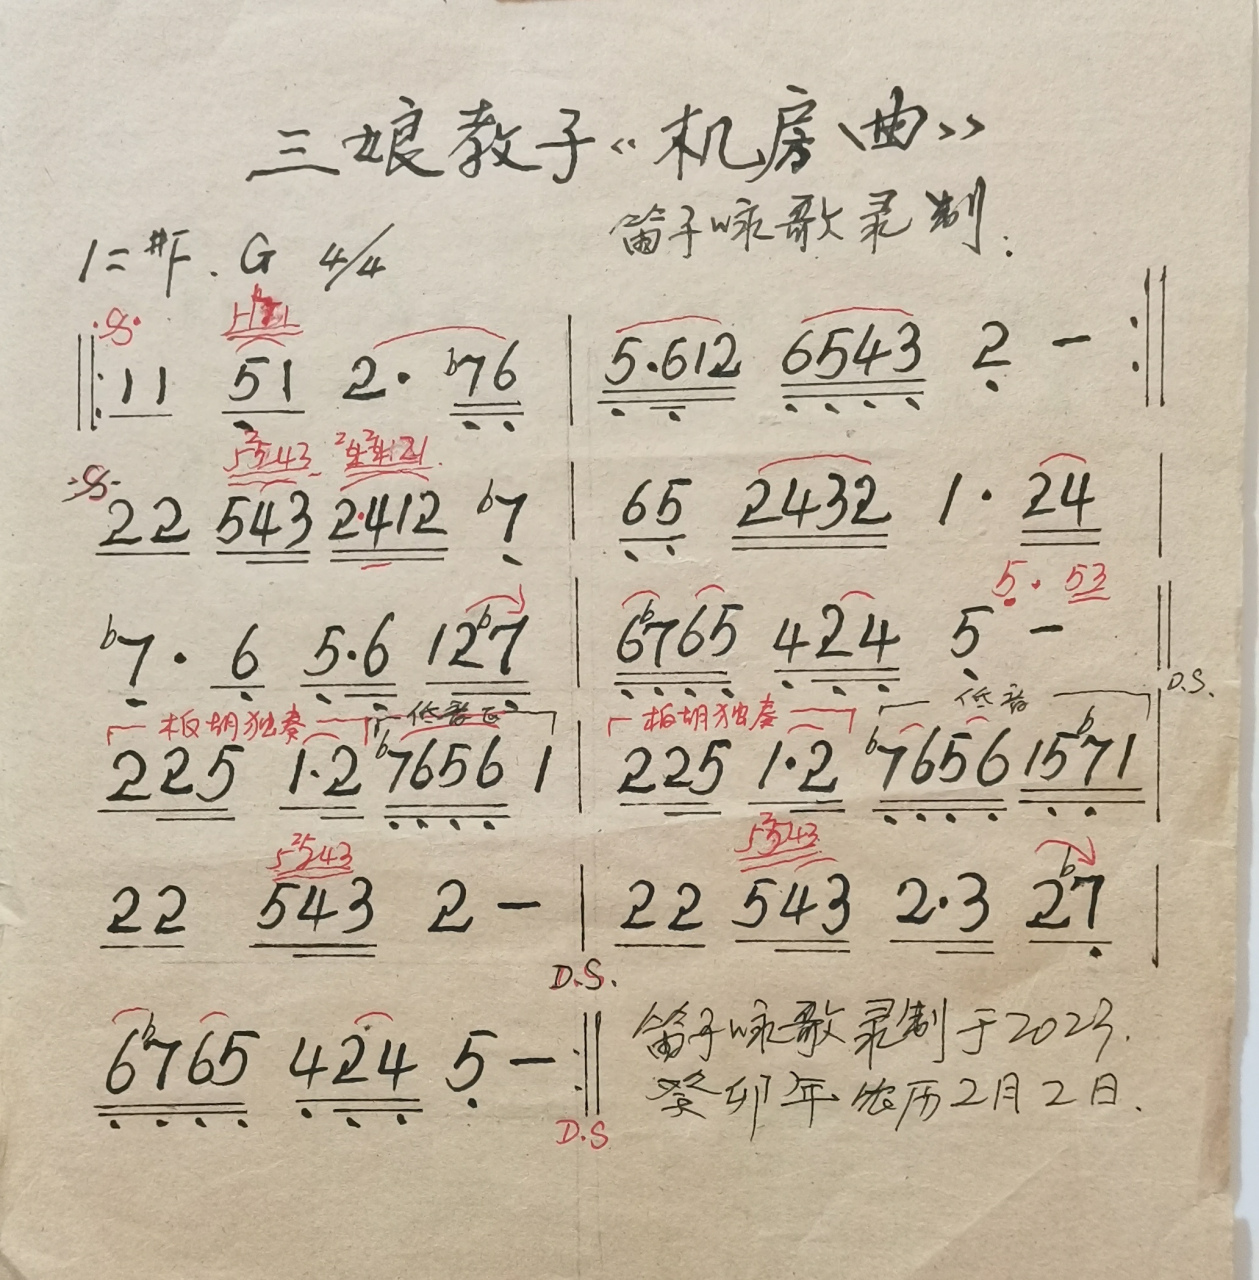 三娘教子《机房曲》
笛子咏歌录制.
1=#F.G 4/4
11 51 2· b76 | 5·612 6543 2 - :||
22 543 2·412 b7 | 65 2432 1· 24 |
5· 53
b7· 6 5·6 12b7 | 6b765 424 5 - ||
D.S.
板胡独奏 低音 板胡独奏 低音
225 1·2 b7656 1 | 225 1·2 b7656 15b71 |
22 543 2 - | 22 543 2·3 2b7 |
D.S.
6b765 424 5 - :||
D.S
笛子咏歌录制于2023.
癸卯年农历2月2日.